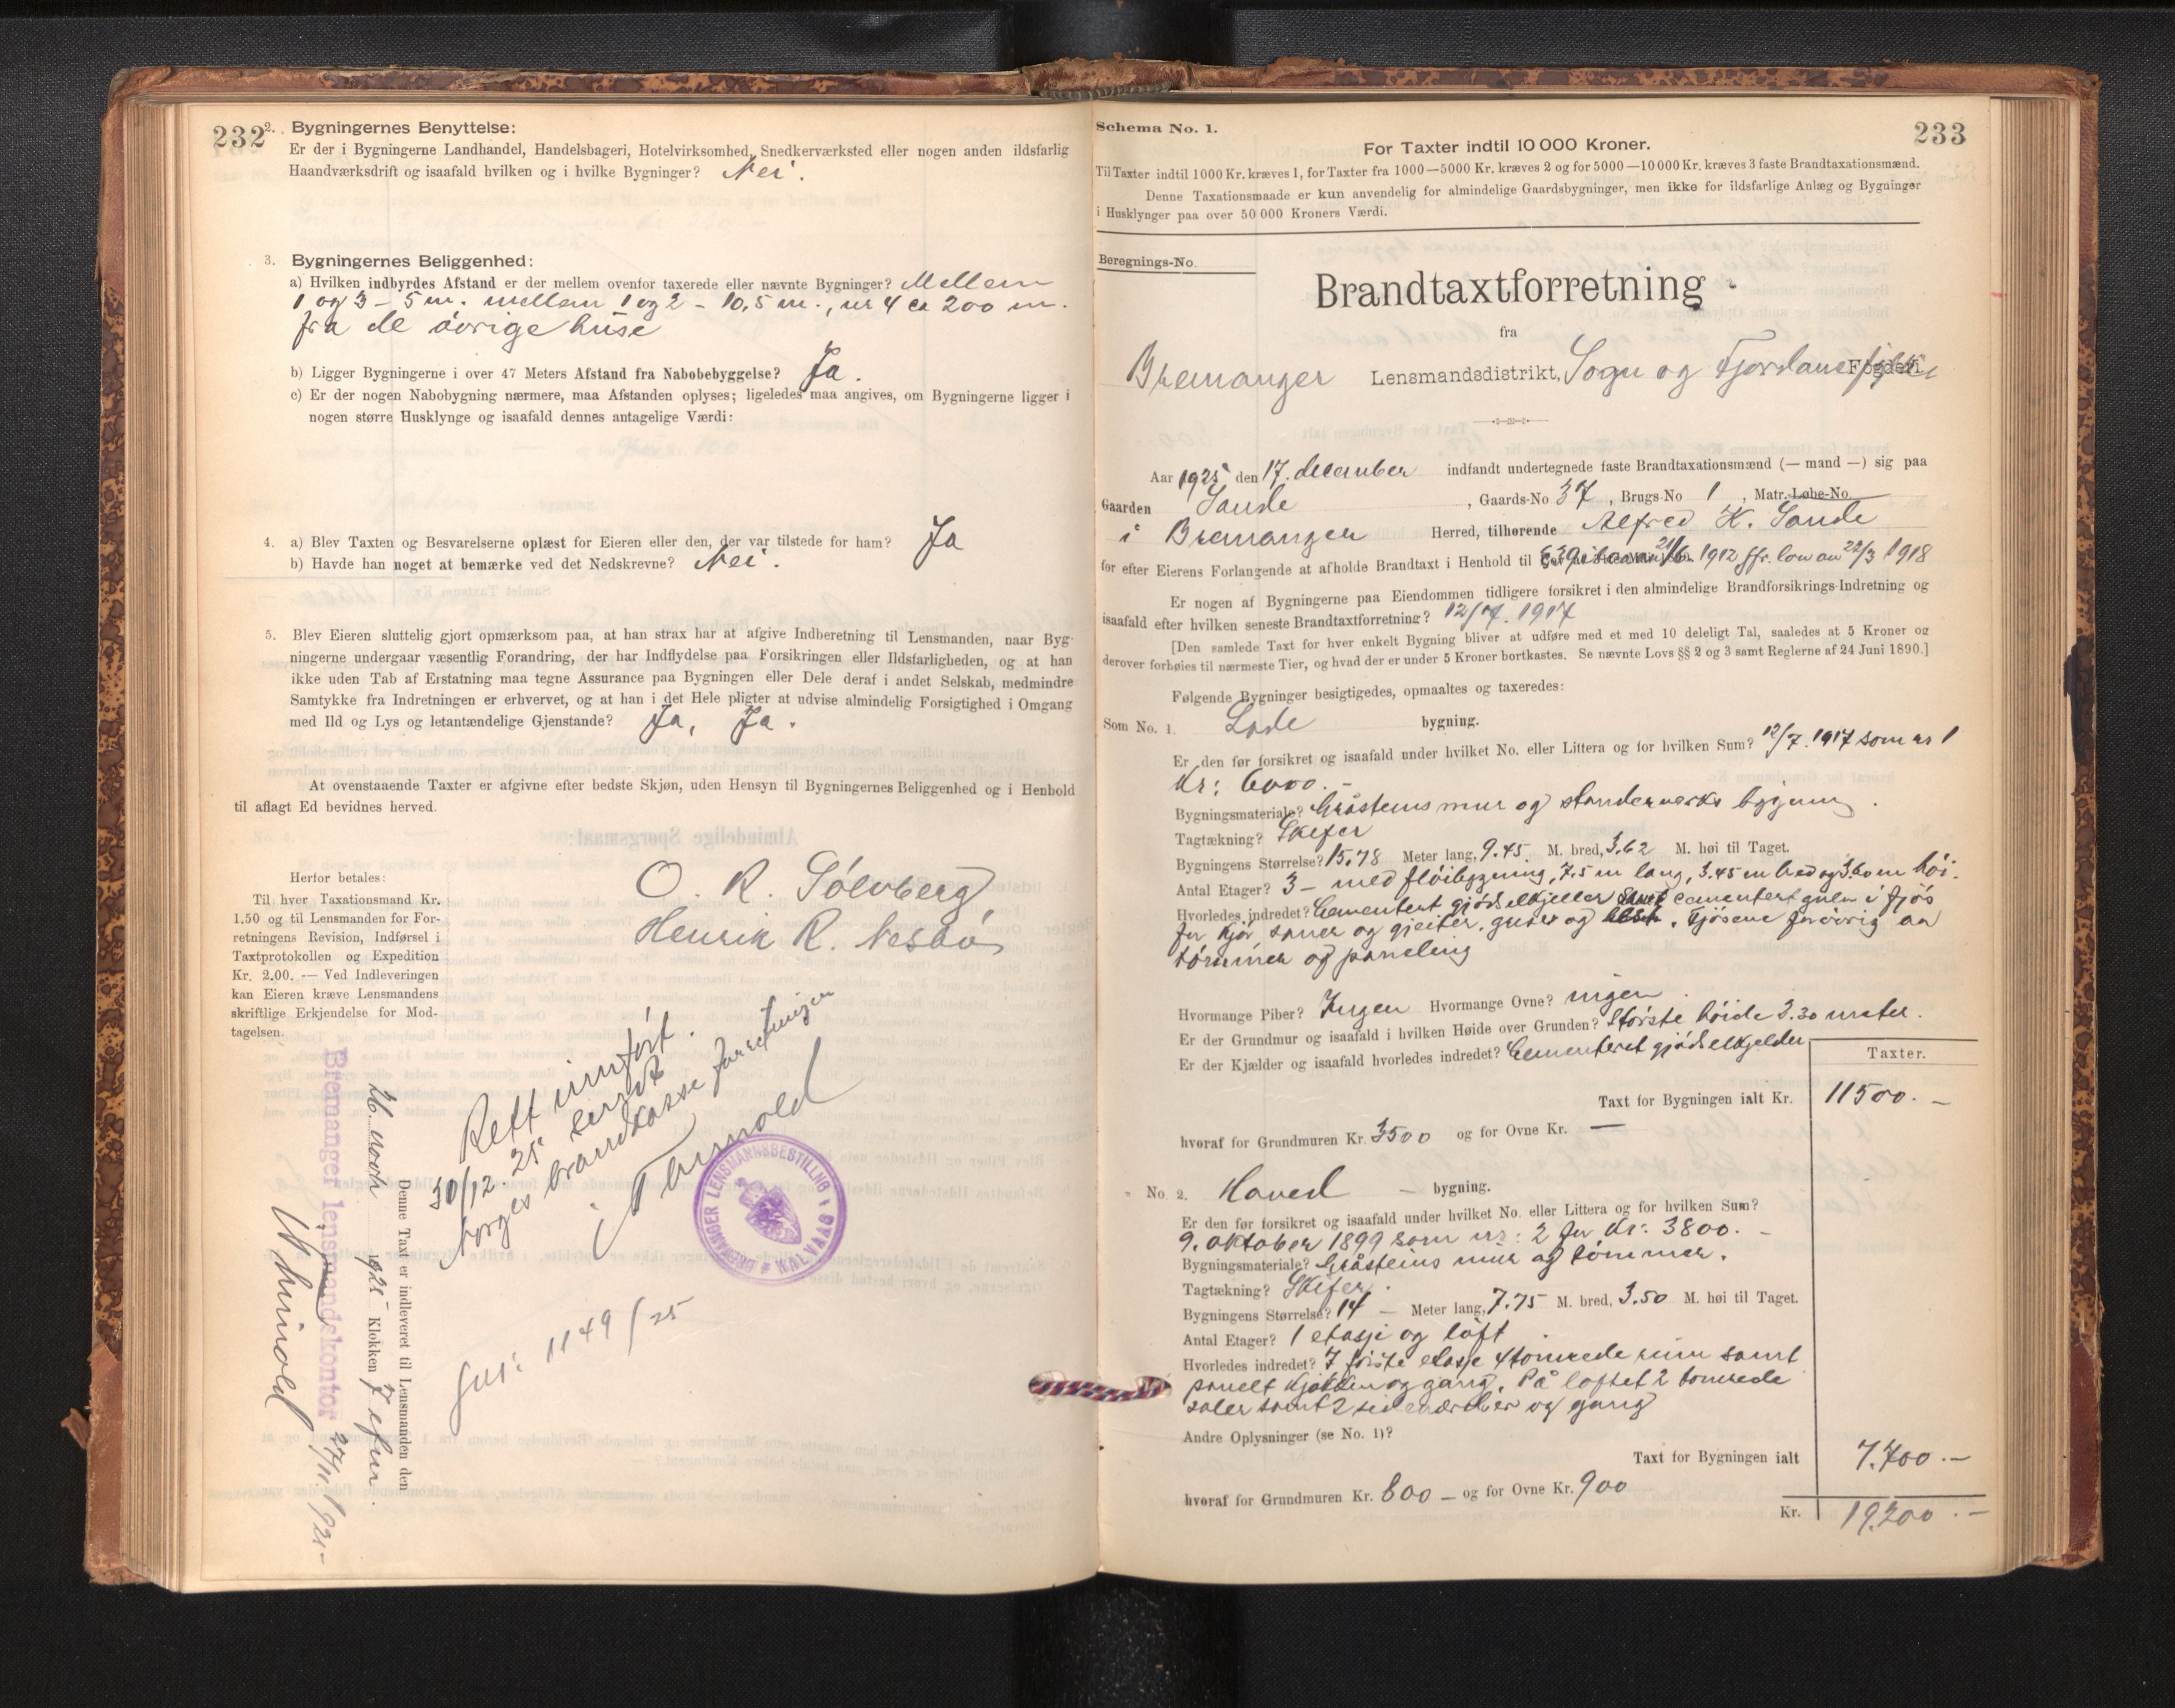 232
2. Bygningernes Benyttelse:
Er der i Bygningerne Landhandel, Handelsbageri, Hotelvirksomhed, Snedkerværksted eller nogen anden ildsfarlig
Haandværksdrift og isaafald hvilken og i hvilke Bygninger? Nei.
3. Bygningernes Beliggenhed:
a) Hvilken indbyrdes Afstand er der mellem ovenfor taxerede eller nævnte Bygninger? Mellem
1 og 3 – 5 m. mellem 1 og 2 – 10,5 m., nr 4 ca 200 m.
fra de øvrige huse
b) Ligger Bygningerne i over 47 Meters Afstand fra Nabobebyggelse? Ja.
c) Er der nogen Nabobygning nærmere, maa Afstanden oplyses; ligeledes maa angives, om Bygningerne ligger i
nogen større Husklynge og isaafald dennes antagelige Værdi:
4. a) Blev Taxten og Besvarelserne oplæst for Eieren eller den, der var tilstede for ham? Ja
b) Havde han noget at bemærke ved det Nedskrevne? Nei.
5. Blev Eieren sluttelig gjort opmærksom paa, at han strax har at afgive Indberetning til Lensmanden, naar Byg-
ningerne undergaar væsentlig Forandring, der har Indflydelse paa Forsikringen eller Ildsfarligheden, og at han
ikke uden Tab af Erstatning maa tegne Assurance paa Bygningen eller Dele deraf i andet Selskab, medmindre
Samtykke fra Indretningen er erhvervet, og at han i det Hele pligter at udvise almindelig Forsigtighed i Omgang
med Ild og Lys og letantændelige Gjenstande? Ja, Ja.
At ovenstaaende Taxter er afgivne efter bedste Skjøn, uden Hensyn til Bygningernes Beliggenhed og i Henhold
til aflagt Ed bevidnes herved.
O. R. Sölvberg
Henrik R. Nesbö
Herfor betales:
Til hver Taxationsmand Kr.
1,50 og til Lensmanden for For-
retningens Revision, Indførsel i
Taxtprotokollen og Expedition
Kr. 2,00. — Ved Indleveringen
kan Eieren kræve Lensmandens
skriftlige Erkjendelse for Mod-
tagelsen.
Rett innført.
30/12. 25 sendt
Norges brandkasse forretningen
BREMANGER LENSMANNSBESTILLNG
KALVAAG
Jnr: 1149/25
Denne Taxt er indleveret til Lensmanden den
1925 Klokken 7
Bremanger lensmandskontor
Schema No. 1.
233
For Taxter indtil 10 000 Kroner.
Til Taxter indtil 1000 Kr. kræves 1, for Taxter fra 1000—5000 Kr. kræves 2 og for 5000—10 000 Kr. kræves 3 faste Brandtaxationsmænd.
Denne Taxationsmaade er kun anvendelig for almindelige Gaardsbygninger, men ikke for ildsfarlige Anlæg og Bygninger
i Husklynger paa over 50 000 Kroners Værdi.
Beregnings-No.
Brandtaxtforretning
fra
Bremanger Lensmandsdistrikt, Sogn og Fjordane fylke Fogderi.
Aar 1925 den 17. december indfandt undertegnede faste Brandtaxationsmænd (— mand —) sig paa
Gaarden Sande, Gaards-No 37, Brugs-No 1, Matr.-Løbe-No.
i Bremanger Herred, tilhørende Alfred K. Sande
for efter Eierens Forlangende at afholde Brandtaxt i Henhold til 21/6 1912 jfr. lov av 22/3 1918
Er nogen af Bygningerne paa Eiendommen tidligere forsikret i den almindelige Brandforsikrings-Indretning og
isaafald efter hvilken seneste Brandtaxtforretning? 12/7. 1917
[Den samlede Taxt for hver enkelt Bygning bliver at udføre med et med 10 deleligt Tal, saaledes at 5 Kroner og
derover forhøies til nærmeste Tier, og hvad der er under 5 Kroner bortkastes. Se nævnte Lovs §§ 2 og 3 samt Reglerne af 24 Juni 1890.]
Følgende Bygninger besigtigedes, opmaaltes og taxeredes:
Som No. 1. Løde bygning.
Er den før forsikret og isaafald under hvilket No. eller Littera og for hvilken Sum? 12/7. 1917 som nr 1
Kr: 6000.–
Bygningsmateriale? Gråsteins mur og standerverks bygning.
Tagtækning? Skifer
Bygningens Størrelse? 15.78 Meter lang, 9.45 M. bred, 3.62 M. høi til Taget.
Antal Etager? 3 – med fløibygning, 7.5 m lang, 3.45 m bred og 3.60 m høi.
Hvorledes indredet? Cementert gjødselkjeller samt cementert gulv i fjøs
for kjør, sauer og gjeiter, griser og . Fjøsene forøvrig av
tømmer og paneling
Hvormange Piber? Ingen Hvormange Ovne? ingen
Er der Grundmur og isaafald i hvilken Høide over Grunden? Største høide 3.30 meter.
Er der Kjælder og isaafald hvorledes indredet? Cementeret gjødselkjelder
Taxter.
Taxt for Bygningen ialt Kr. 11500.–
hvoraf for Grundmuren Kr. 3500 og for Ovne Kr. —
No. 2. Hoved – bygning.
Er den før forsikret og isaafald under hvilket No. eller Littera og for hvilken Sum?
9. oktober 1899 som nr: 2 for Kr: 3800.–
Bygningsmateriale? Gråsteins mur og tømmer.
Tagtækning? Skifer.
Bygningens Størrelse? 14 – Meter lang, 7.75 M. bred, 3.50 M. høi til Taget.
Antal Etager? 1 etasje og loft.
Hvorledes indredet? I første etasje 4 tømrede rum samt
panelt kjøkken og gang. På loftet 2 tømrede
saler samt 2 og gang
Andre Oplysninger (se No. 1)?
Taxt for Bygningen ialt 7.700.–
hvoraf for Grundmuren Kr. 800 – og for Ovne Kr. 900
Kr. 19.200.–